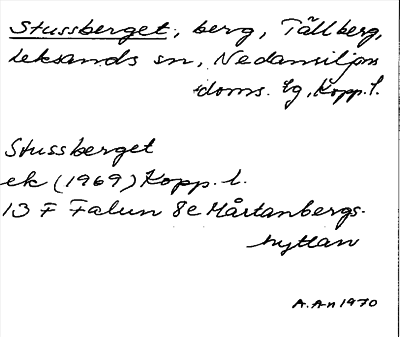 Stussberget, berg, Tällberg,
Leksands sn, Nedansiljans
doms. tg, Kopp. l.
Stussberget
ek (1969) Kopp. l.
13 F Falun 8e Mårtanbergs-
hyttan
A. An 1970